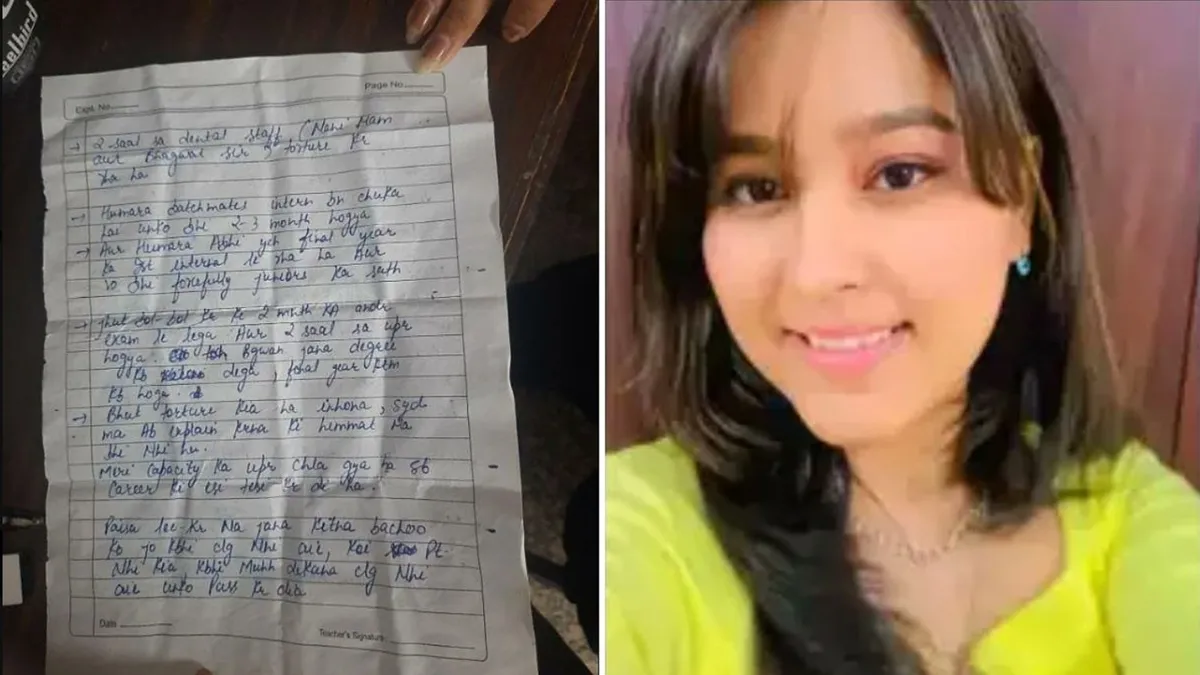 aelbird
Expt. No.
Page No.
→ 2 saal sa dental staff (Mam
aur Bhagwat sir torture kr
rha ha
→ Humara batchmates intern bn chuka
hai unko bhi 2-3 month hogya
→ Aur Humara Abhi yeh final year
ka 1st internal le rha ha Aur
vo bhi forcefully juniors ka sath
→ jhut bol-bol kr ki 2 month KA andr
exam le lega Aur 2 saal sa upr
hogya. Bgwan jana degree
Kb dega, final year ktm
Kb hoga.
→ Bhut torture kia ha inhona, syd
ma Ab explain krna ki himmat na
bhi Nhi hu.
Meri capacity ka upr chla gya ha sb
Career ki esi tesi kr di ha.
Paisa lee-kr Na jana kitna bachoo
ko jo kbhi clg Nhi aie, koi Pt.
Nhi kia kbhi Muhh dikhana clg Nhi
aie unko Pass kr dia
Date
Teacher's Signature